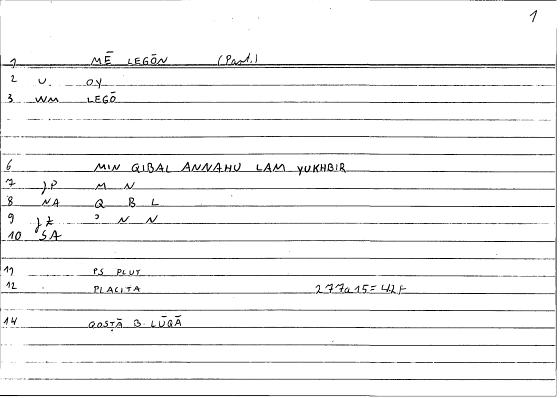 1
1 MĒ LEGŌN (Part.)
2 U. OY
3 WM LEGŌ
6 MIN QIBAL ANNAHU LAM YUKHBIR
7 J.P M N
8 NA Q B L
9 ʾ N N
10 SA
11 PS PLUT
12 PLACITA 277a15=42
14 QOSṬĀ B LŪQĀ